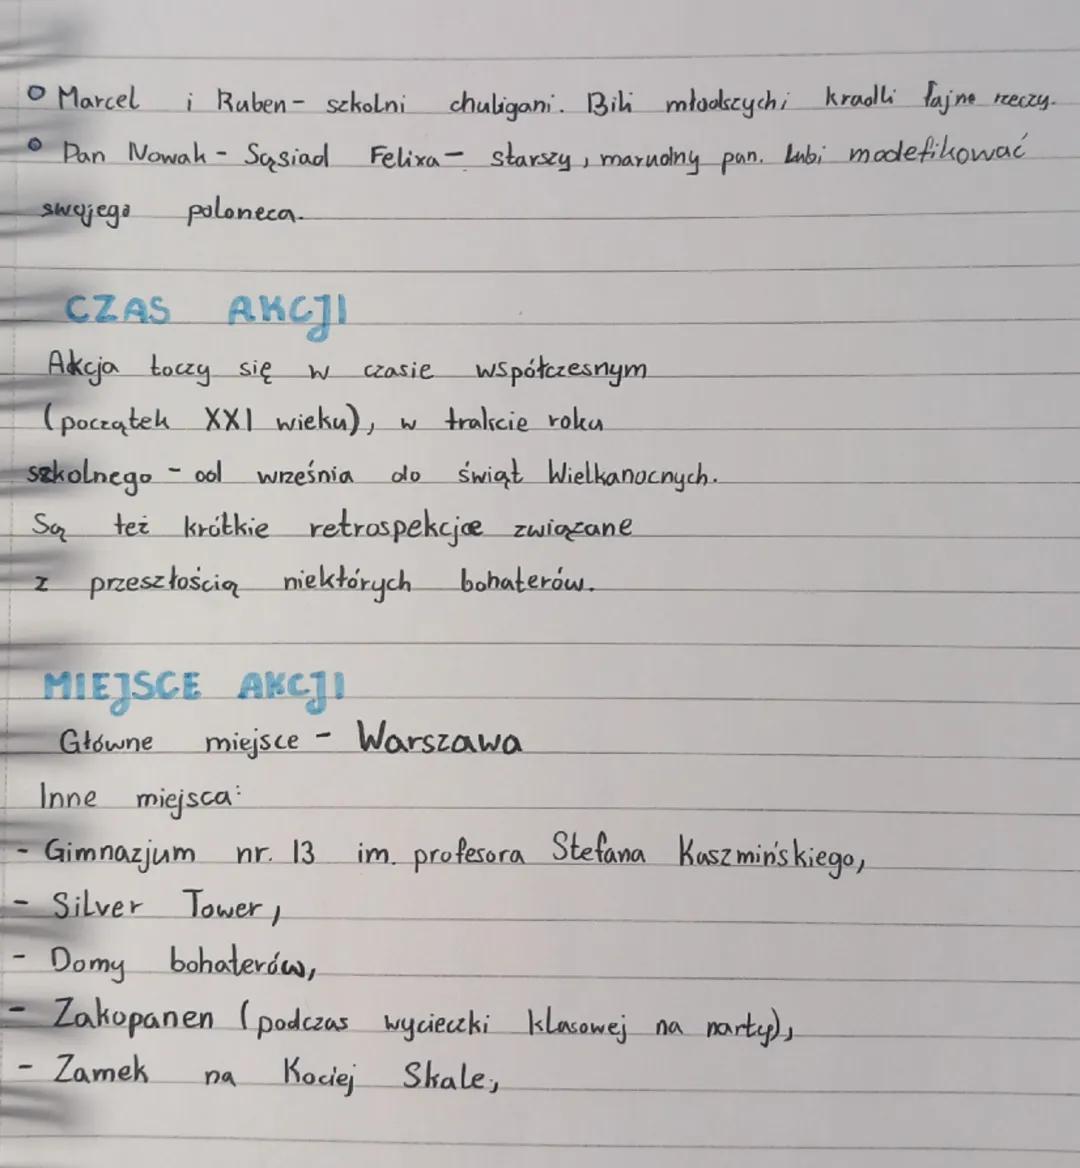 • Marcel i Ruben - szkolni chuligani. Bili młodszych i kradli fajne rzeczy.
• Pan Nowak - Sąsiad Felixa - starszy, marudny pan. Lubi modefikować
swojego poloneza.
CZAS AKCJI
Akcja toczy się w czasie współczesnym
(początek XXI wieku), w trakcie roku
szkolnego - od września do świąt Wielkanocnych.
Są też krótkie retrospekcje związane
z przeszłością niektórych bohaterów.
MIEJSCE AKCJI
Główne miejsce - Warszawa
Inne miejsca:
- Gimnazjum nr. 13 im. profesora Stefana Kuszmińskiego,
- Silver Tower,
- Domy bohaterów,
- Zakopanen (podczas wycieczki klasowej na narty),
- Zamek na Kociej Skale,